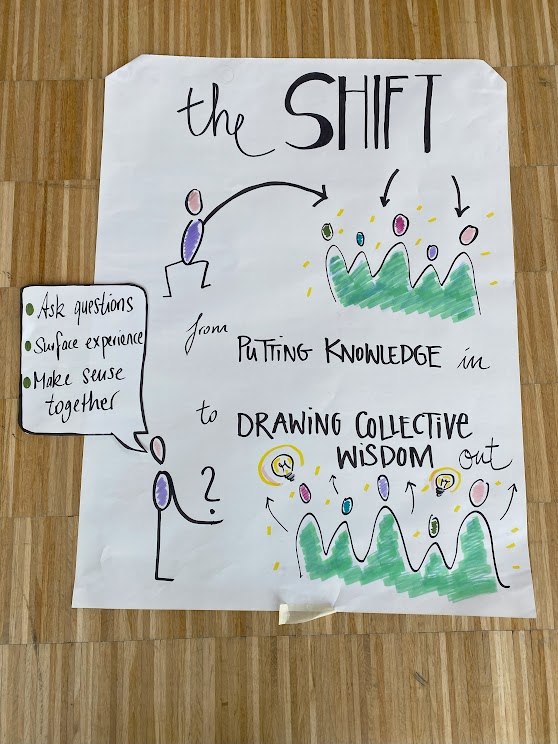 the SHIFT
from
PUTTING KNOWLEDGE in
to
DRAWING COLLECTIVE
WISDOM out
Ask questions
Surface experience
Make sense
together
?